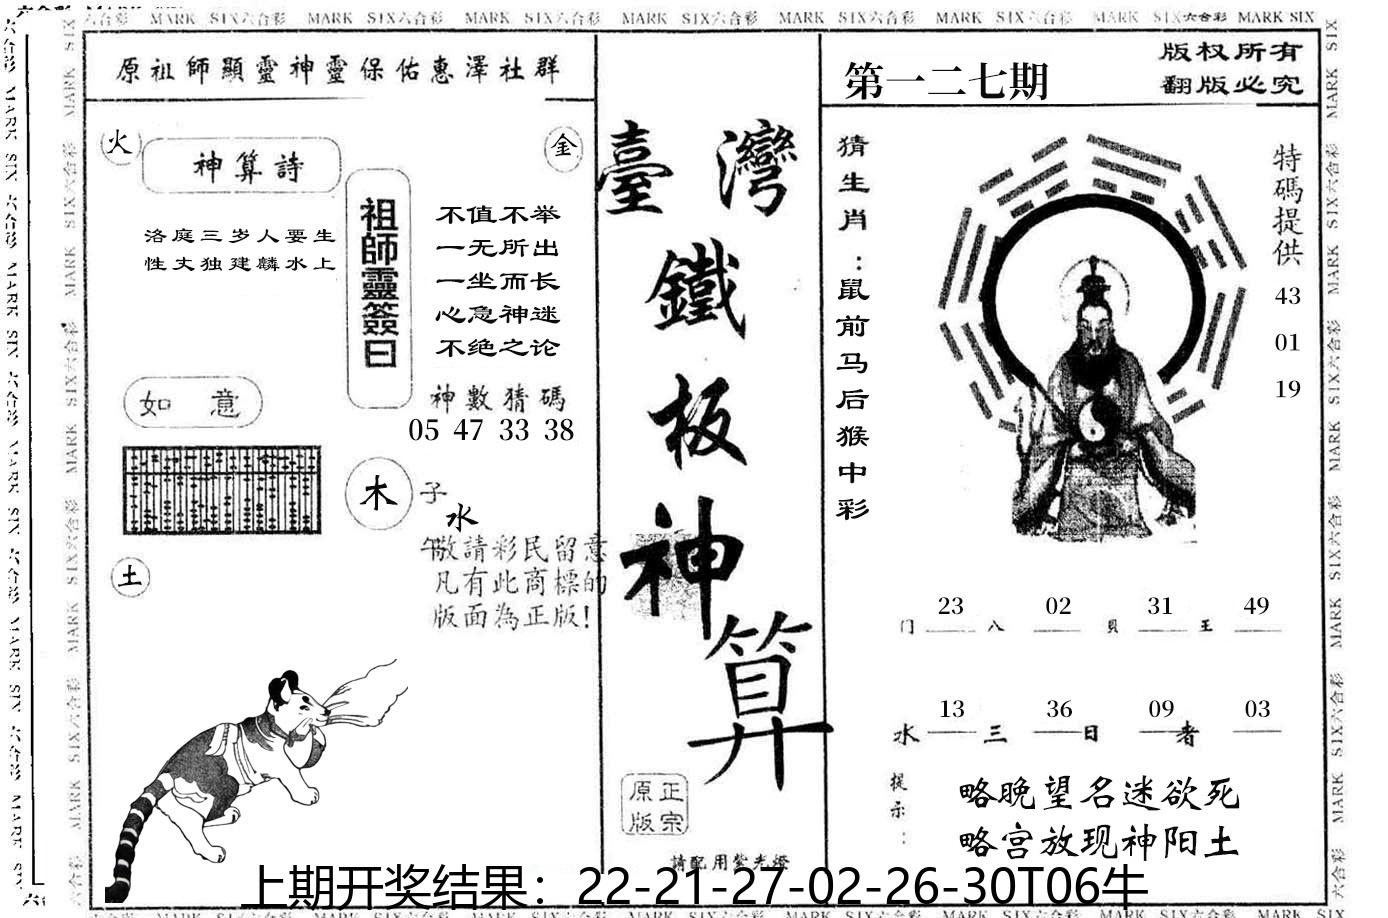 原祖師顯靈神靈保佑惠澤社群
火
神算詩
金
洛庭三岁人要生
性丈独建麟水上
祖師靈簽曰
不值不举
一无所出
一坐而长
心急神迷
不绝之论
神數猜碼
05 47 33 38
如意
木
子
水
午
敬請彩民留意
凡有此商標的
版面為正版!
土
臺灣
鐵
板
神
算
原正
版宗
請配用紫光燈
第一二七期
版权所有
翻版必究
猜生肖:鼠前马后猴中彩
特碼提供
43
01
19
23 02 31 49
门 八 貝 王
13 36 09 03
水 三 日 者
提示:
略晚望名迷欲死
略宫放现神阳土
上期开奖结果：22-21-27-02-26-30T06牛
MARK SIX六合彩 MARK SIX六合彩 MARK SIX六合彩 MARK SIX六合彩 MARK SIX六合彩 MARK SIX六合彩 MARK SIX六合彩 MARK SIX